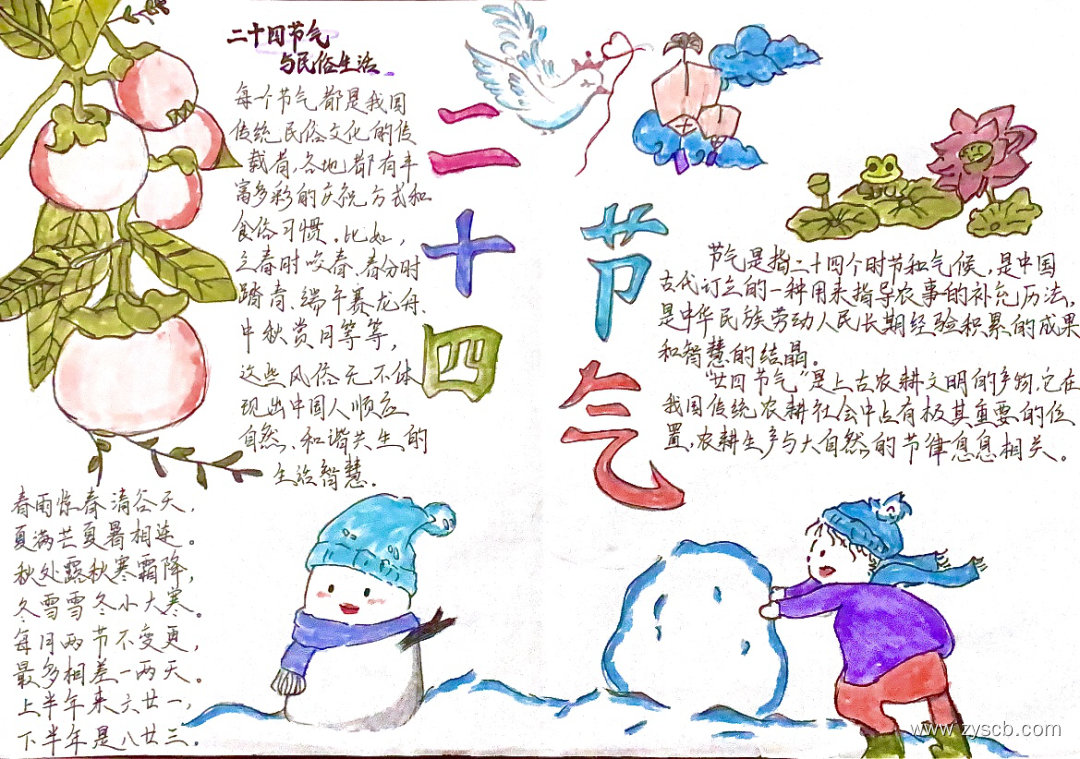 二十四节气
与民俗生活
每个节气都是我国
传统民俗文化的传
载着,各地都有丰
富多彩的庆祝方式和
食俗习惯。比如,
立春时咬春、春分时
踏青、端午赛龙舟、
中秋赏月等等,
这些风俗无不体
现出中国人顺应
自然、和谐共生的
生活智慧.
二十四
节气
节气是指二十四个时节和气候,是中国
古代订立的一种用来指导农事的补充历法,
是中华民族劳动人民长期经验积累的成果
和智慧的结晶。
“廿四节气”是上古农耕文明的产物,它在
我国传统农耕社会中占有极其重要的位
置,农耕生产与大自然的节律息息相关。
春雨惊春清谷天,
夏满芒夏暑相连。
秋处露秋寒霜降,
冬雪雪冬小大寒。
每月两节不变更,
最多相差一两天。
上半年来六廿一,
下半年是八廿三。
www.zyscb.com